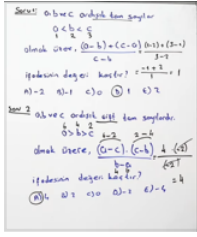 Soru 1 a, b ve c ardışık tam sayılar
a < b < c
1 2 3
olmak üzere, (a-b) + (c-a) (1-2) + (3-1)
c-b 3-2
-1+2
1 = 1
ifadesinin değeri kaçtır?
A) -2 B) -1 C) 0 D) 1 E) 2
Soru 2 a, b ve c ardışık çift tam sayılardır.
6 4 2
a > b > c 6-2 2-4
olmak üzere, (a-c) . (c-b) 4 . (-2)
b-a (-2)
4 6
= 4
ifadesinin değeri kaçtır?
A) 4 B) 2 C) 0 D) -2 E) -4